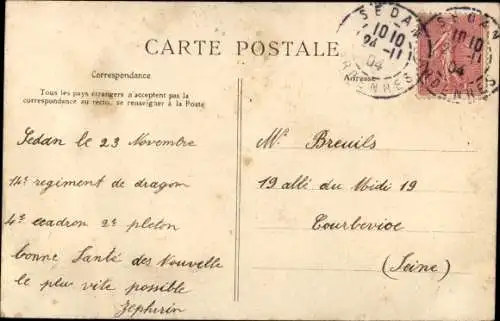 CARTE POSTALE
Correspondance
Tous les pays étrangers n'acceptent pas la
correspondance au recto, se renseigner à la Poste
Sedan le 23 Novembre
14e regiment de dragon
4e escadron 2e pleton
bonne Santé des Nouvelle
le plus vite possible
Zephirin
SEDAN
1010
24-11
04
ARDENNES
SEDAN
1010
-11
04
ARDENNES
Adresse
Mr Breuils
19 allé du Midi 19
Courbevioe
(Seine)